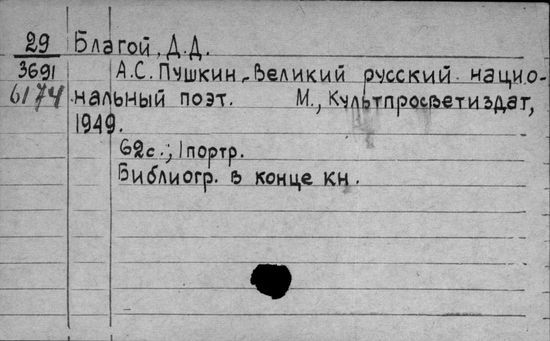 29 Благой, Д.Д.
3691 А.С. Пушкин - великий русский нацио-
6174 нальный поэт. М., Культпросветиздат,
1949.
62с.; 1 портр.
Библиогр. в конце кн.